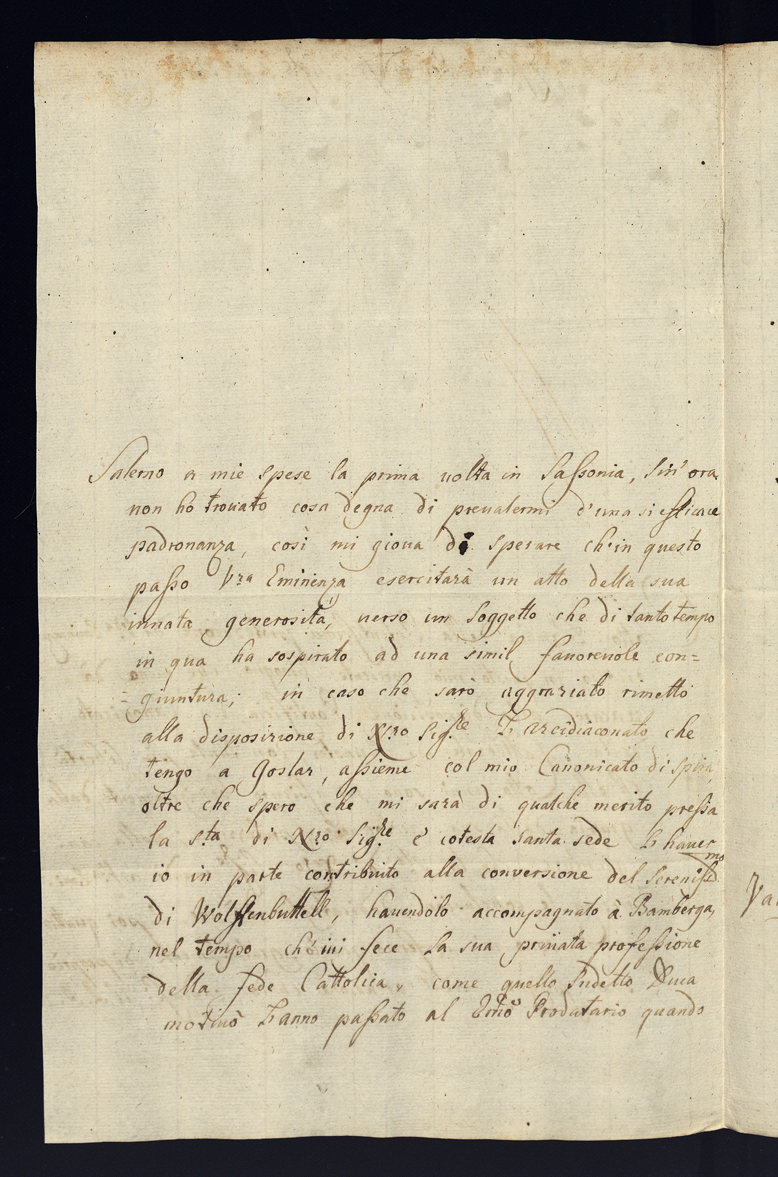 Salerno a mie spese la prima uolta in Saſsonia, sin' ora
non hò trouato cosa degna di preualermi d'una si efficace
padronanza, così mi gioua di sperare ch'in questo
paſso Vra Eminenza esercitarà un atto della sua
innata generosità, uerso un soggetto che di tanto tempo
in qua ha sospirato ad una simil fauoreuole con=
=giuntura; in caso che sarò aggraziato rimetto
alla disposizione di Nro Sigre L'arcidiaconato che
tengo a Goslar, aſsieme col mio Canonicato di Spira,
oltre che spero che mi sarà di qualche merito preſsa
la Sta di Nro Sigre è cotesta santa sede L'hauer
io in parte contribuito alla conversione del Serenissmo D.
di Wolffenbuttell, hauendolo accompagnato à Bamberga,
nel tempo ch'iui fece La sua priuata profeſsione
della fede Cattolica, come quello sudetto Duca
motiuò L'anno paſsato al Emo Prodatario quando
Va